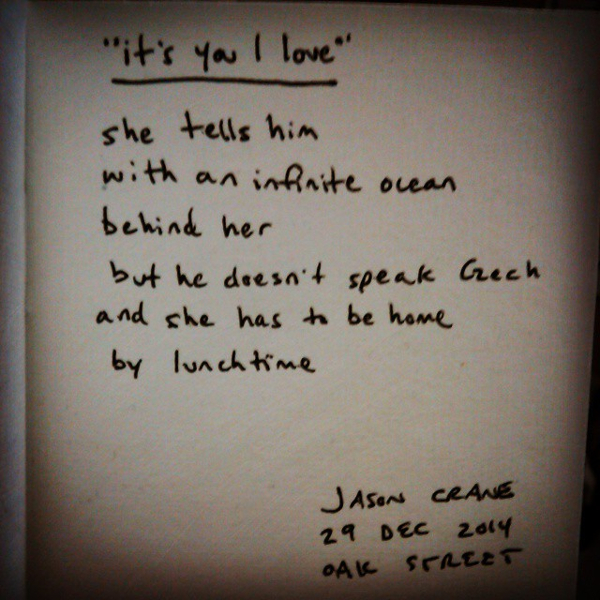 "it's you I love"
she tells him
with an infinite ocean
behind her
but he doesn't speak Czech
and she has to be home
by lunchtime
JASON CRANE
29 DEC 2014
OAK STREET